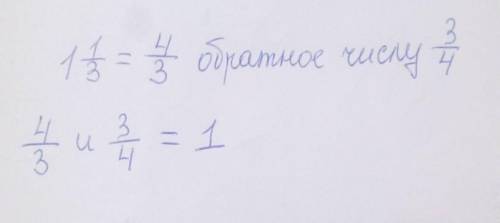 1 1/3 = 4/3 обратное числу 3/4
4/3 и 3/4 = 1